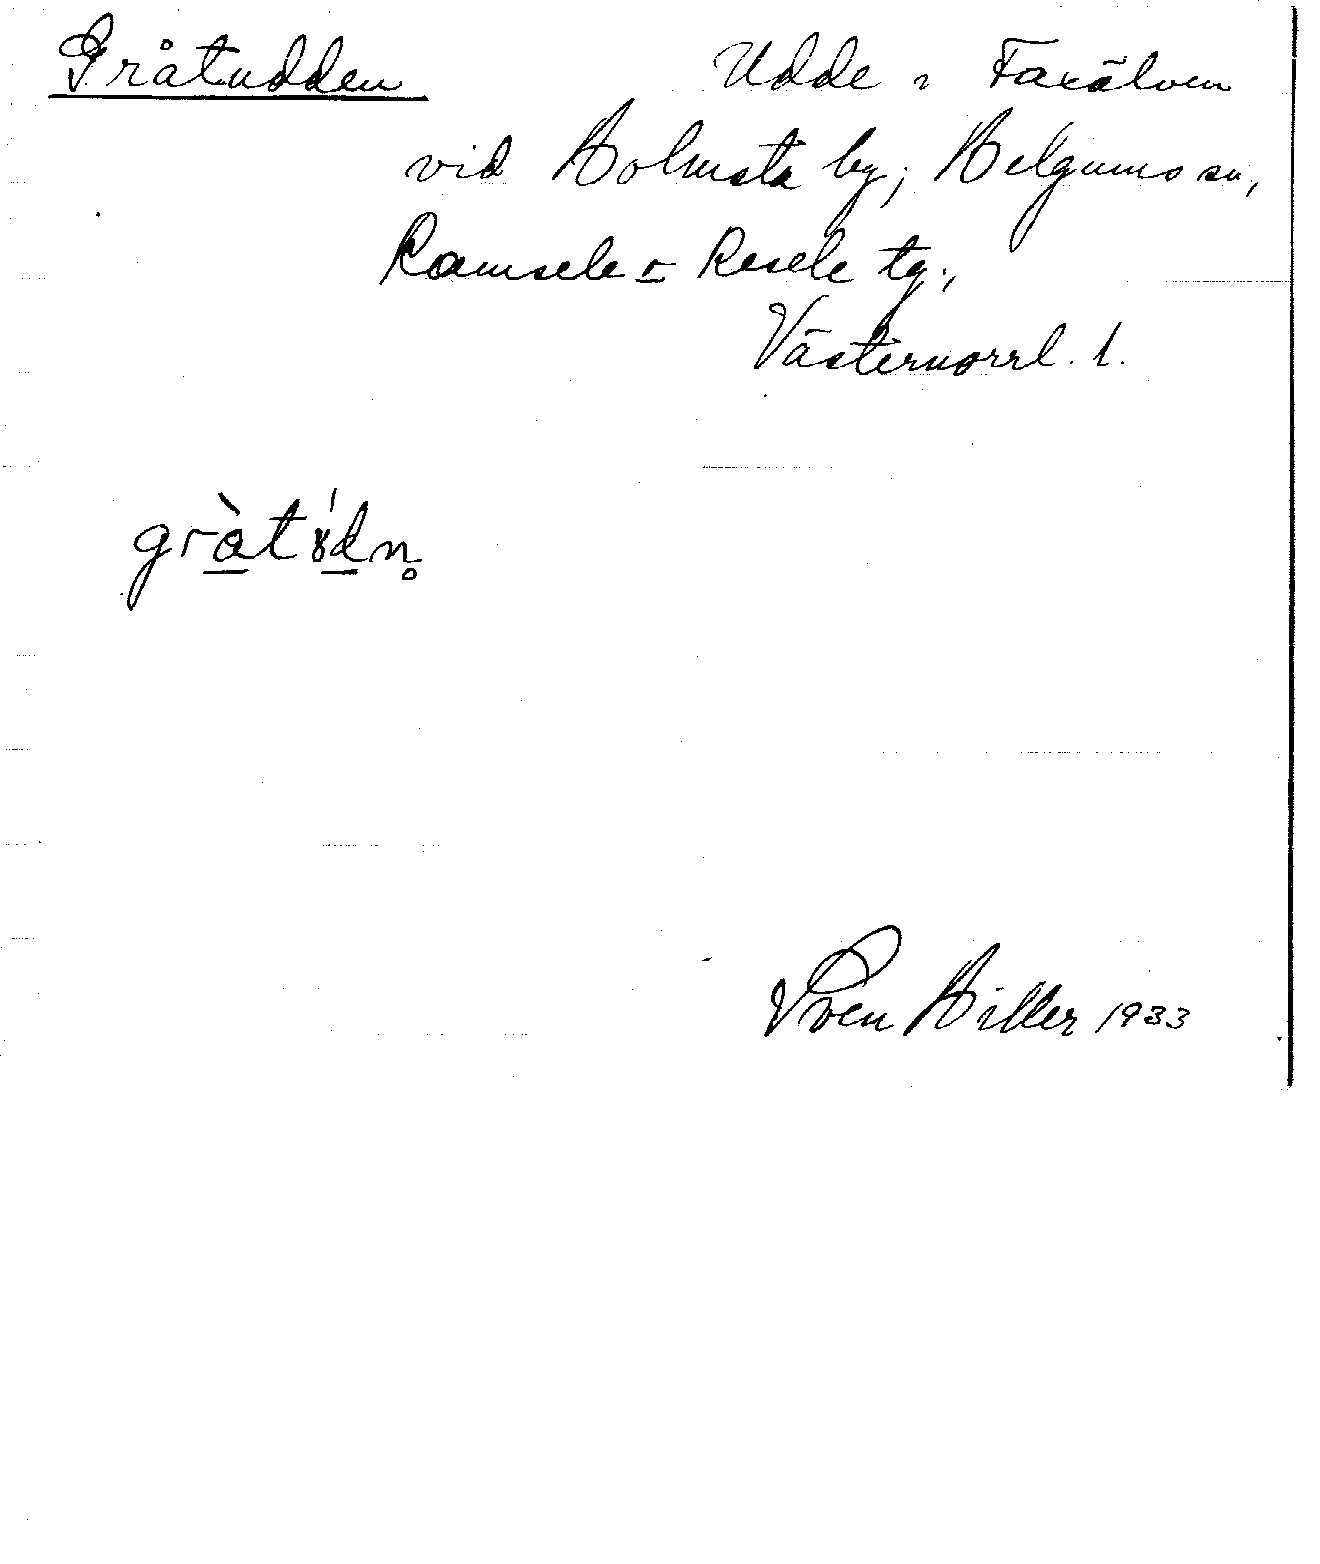 Gråtudden Udde i Faxälven
vid Holmsta by, Helgums sn,
Ramsele o Resele tg.,
Västernorrl. l.
Sven Hiller 1933